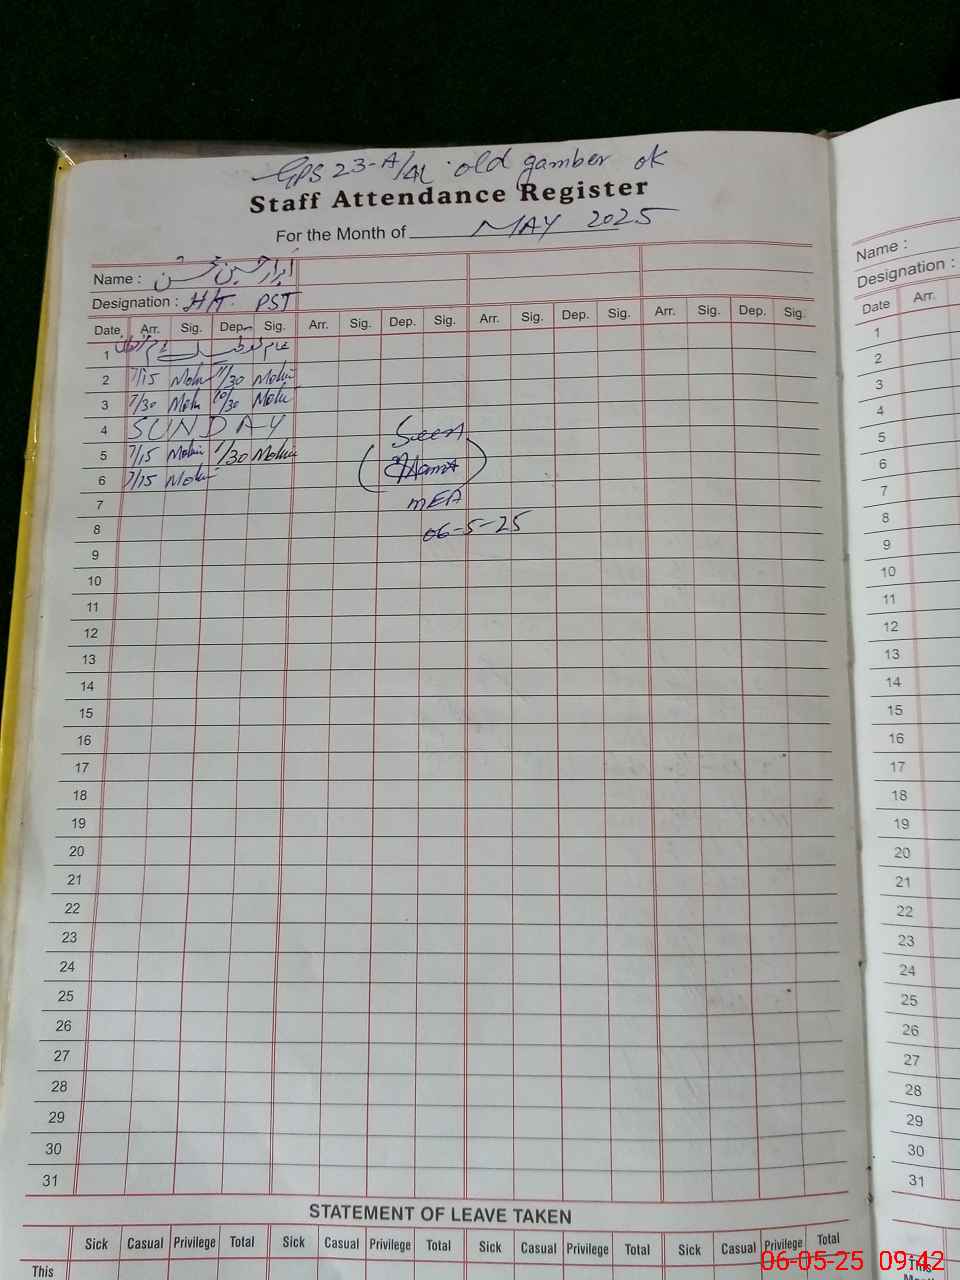 GPS 23-A/4L old gamber ok
Staff Attendance Register
For the Month of MAY 2025
Name : ابرار حسین
Designation : H/T. PST
Date Arr. Sig. Dep. Sig. Arr. Sig. Dep. Sig. Arr. Sig. Dep. Sig. Arr. Sig. Dep. Sig.
1 عام تعطیل
2 7/15 11/30
3 7/30 10/30
4 SUNDAY
5 7/15 1/30
6 7/15
Seen
7
MEA
8
06-5-25
9
10
11
12
13
14
15
16
17
18
19
20
21
22
23
24
25
26
27
28
29
30
31
STATEMENT OF LEAVE TAKEN
Sick Casual Privilege Total Sick Casual Privilege Total Sick Casual Privilege Total Sick Casual Privilege Total
This
Name :
Designation :
Date Arr.
1
2
3
4
5
6
7
8
9
10
11
12
13
14
15
16
17
18
19
20
21
22
23
24
25
26
27
28
29
30
31
This
06-05-25 09:42